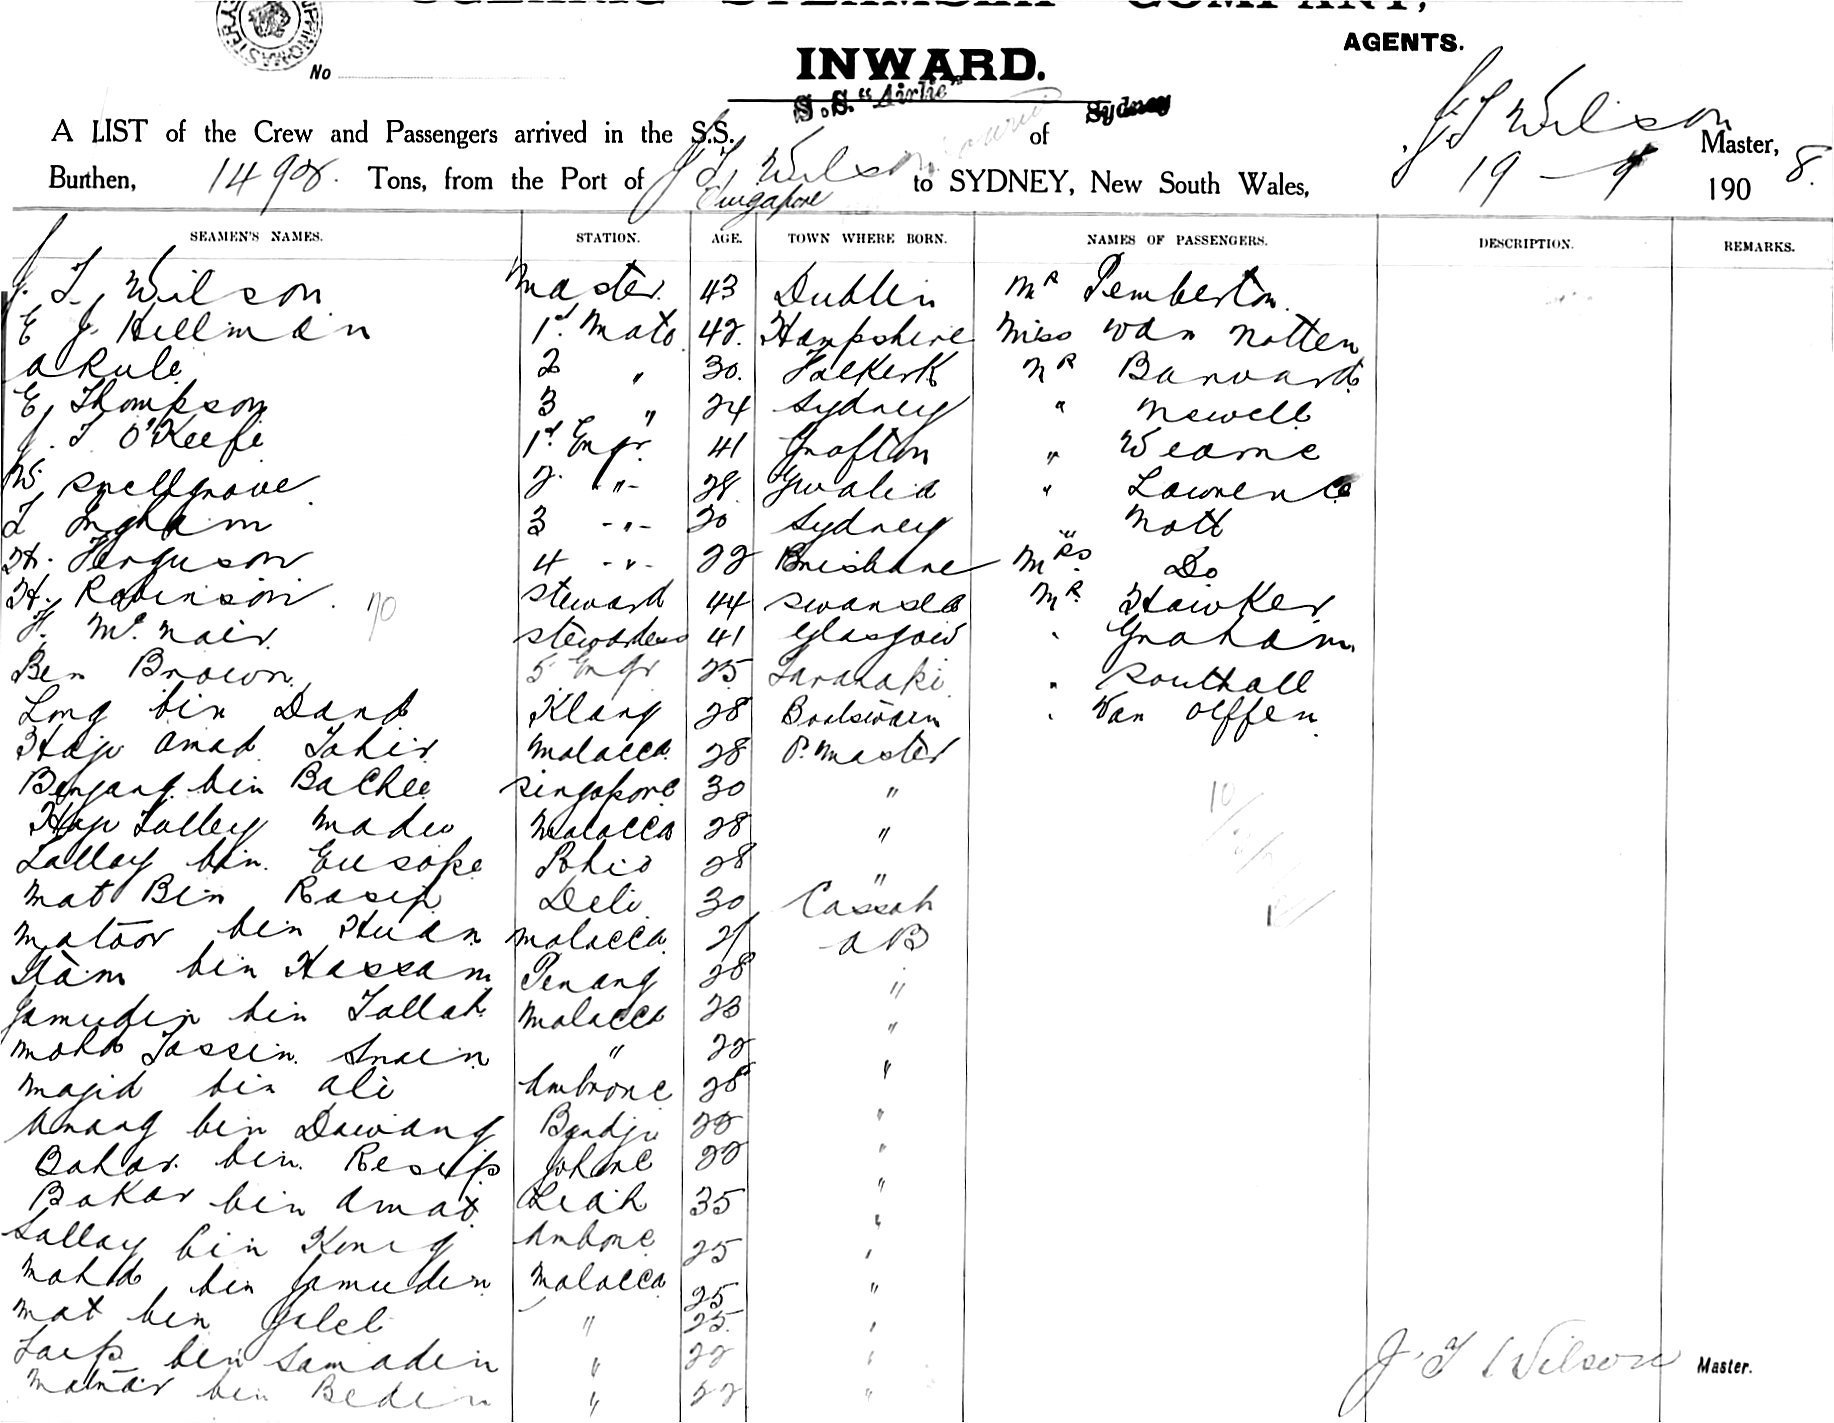 COMPANY,
AGENTS.
No
INWARD.
S.S. "Airlie" Sydney
A LIST of the Crew and Passengers arrived in the S.S. of J T Wilson Master,
Burthen, 1498. Tons, from the Port of J T Wilson Singapore to SYDNEY, New South Wales, 19 - 9 1908.
SEAMEN'S NAMES. STATION. AGE. TOWN WHERE BORN. NAMES OF PASSENGERS. DESCRIPTION. REMARKS.
J. T. Wilson Master. 43 Dublin Mr Pemberton.
E J. Hillman 1st Mate 42. Hampshire Miss Van Notten
A Rule 2 " 30. Falkerk Mr Barvard
E. Thompson 3 " 24 Sydney " Newell
J. T O'Keefe 1st Engr. 41 Grafton " Wearne
W. Snellgrove 2. -"- 28. Gwalia " Lawrence
T Ingham 3 -"- 20 Sydney " Nott
H. Ferguson 4 -"- 22 Brisbane Mrs. Do
H. Robinson. Steward 44 Swansea Mr. Hawker
F. McNair. Stewardess 41 Glasgow " Graham.
Ben Brown. 5 Engr 25 Taranaki. " Southall
Long bin Klang 28 " Van Olffen
Haji Amad Tahir Malacca. 28 P. Master
bin Bachee Singapore 30 "
Haji Salley Madu Malacca 28 "
Sallay bin. Eusope 28 "
Mat Bin Rasip Deli 30 Cassab
Matoor bin Malacca. 21 AB
bin Hassam Penang 28 "
Jamudin bin Tallah. Malacca 23 "
Mohd Tassin. " 22 "
Majid bin Ali 28 "
Awang bin Dawang 22 "
Bahar. bin. Resip Johore 22 "
Bakar bin Amat. 35 "
Sallay bin 25 "
Mohd bin Jamuden Malacca 25 "
Mat bin " 25. "
bin Samadin " 22 "
bin Bedin " 22 "
J. T Wilson Master.